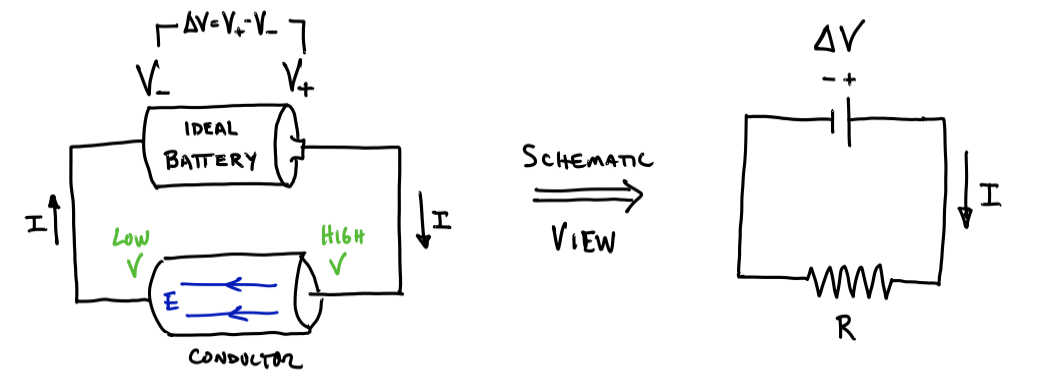 ΔV=V₊-V₋
V₋
V₊
IDEAL
BATTERY
I
I
LOW
V
HIGH
V
E
CONDUCTOR
SCHEMATIC
VIEW
ΔV
- +
I
R